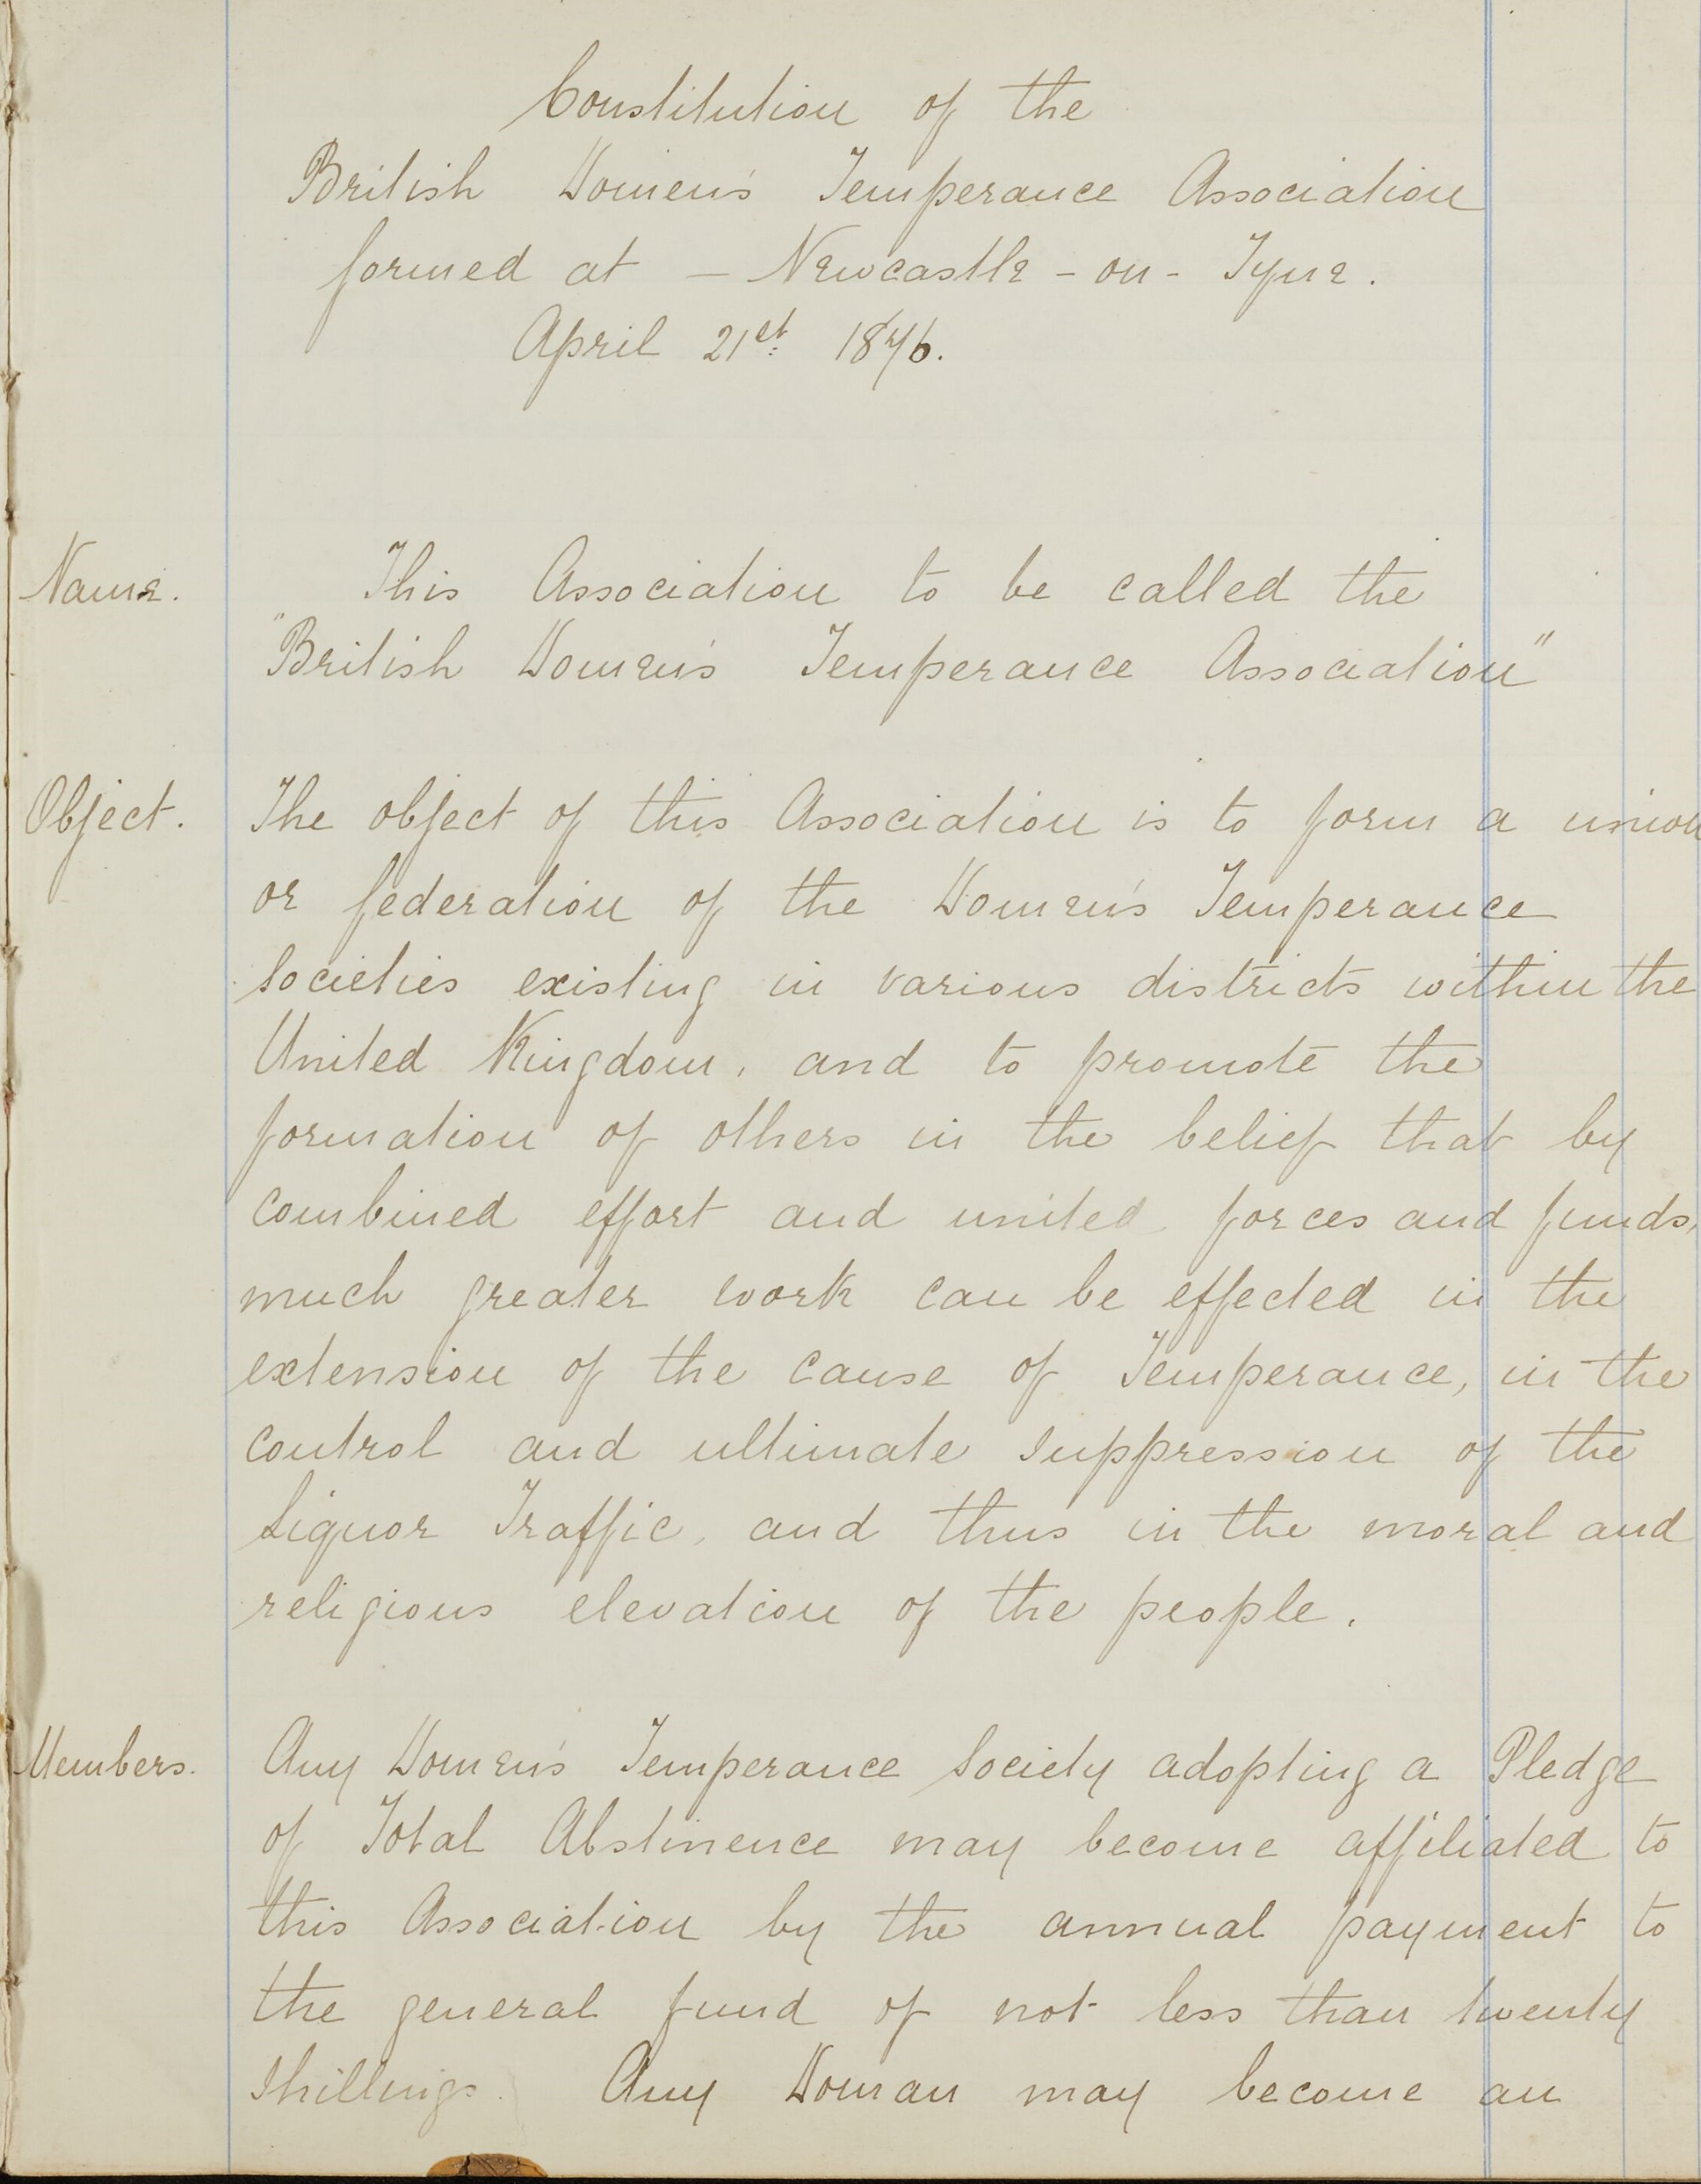 Constitution of the
British Women's Temperance Association
formed at — Newcastle - on - Tyne.
April 21st 1876.
Name. This Association to be called the
"British Women's Temperance Association"
Object. The object of this Association is to form a union
or federation of the Women's Temperance
Societies existing in various districts within the
United Kingdom, and to promote the
formation of others in the belief that by
combined effort and united forces and funds,
much greater work can be effected in the
extension of the cause of Temperance, in the
control and ultimate suppression of the
Liquor Traffic, and thus in the moral and
religious elevation of the people.
Members. Any Women's Temperance Society adopting a Pledge
of Total Abstinence may become affiliated to
this Association by the annual payment to
the general fund of not less than twenty
shillings. Any Woman may become an